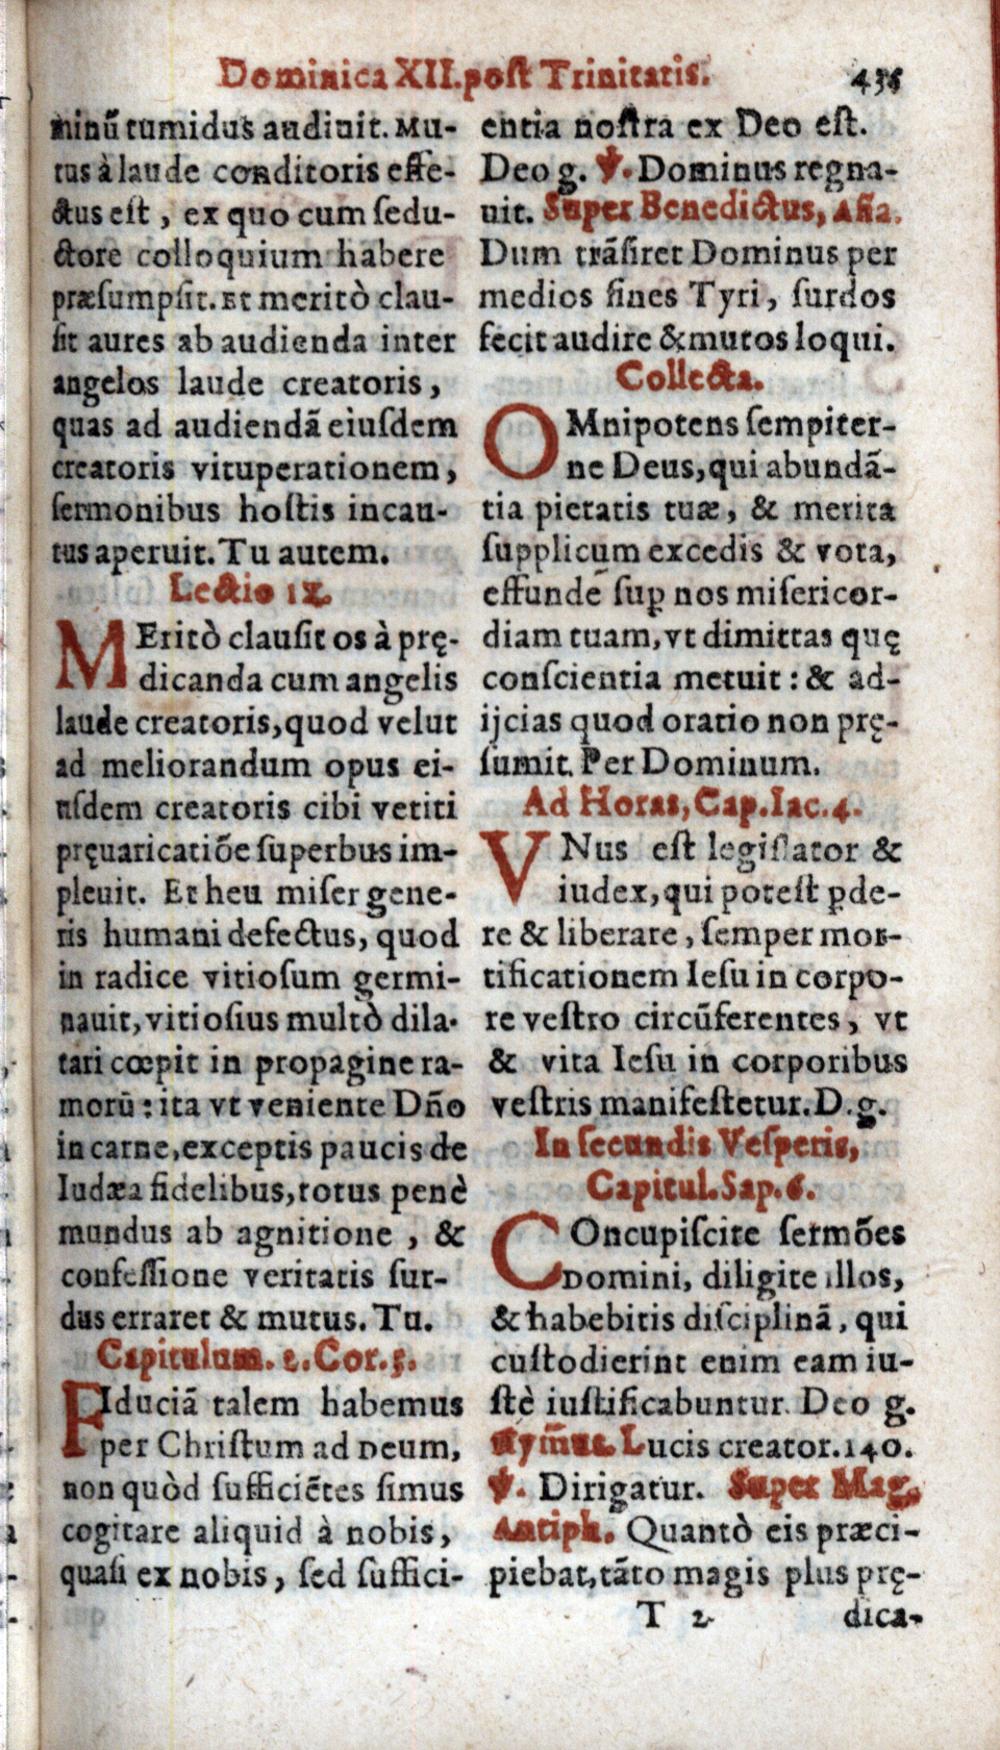 Dominica XII. post Trinitatis. 435
minũ tumidus audiuit. Mu-
tus à laude conditoris effe-
ctus est, ex quo cum sedu-
ctore colloquium habere
præsumpsit. Et meritò clau-
sit aures ab audienda inter
angelos laude creatoris,
quas ad audiendã eiusdem
creatoris vituperationem,
sermonibus hostis incau-
tus aperuit. Tu autem.
Lectio ix.
MEritò clausit os à prę-
dicanda cum angelis
laude creatoris, quod velut
ad meliorandum opus ei-
usdem creatoris cibi vetiti
pręuaricatiõe superbus im-
pleuit. Et heu miser gene-
ris humani defectus, quod
in radice vitiosum germi-
nauit, vitiosius multò dila-
tari cœpit in propagine ra-
morũ: ita vt veniente Dño
in carne, exceptis paucis de
Iudæa fidelibus, totus penè
mundus ab agnitione, &
confessione veritatis sur-
dus erraret & mutus. Tu.
Capitulum. 2. Cor. 3.
FIduciã talem habemus
per Christum ad Deum,
non quòd sufficiẽtes simus
cogitare aliquid à nobis,
quasi ex nobis, sed suffici-
entia nostra ex Deo est.
Deo g. ℣. Dominus regna-
uit. Super Benedictus, Aña.
Dum trãsiret Dominus per
medios fines Tyri, surdos
fecit audire & mutos loqui.
Collecta.
OMnipotens sempiter-
ne Deus, qui abundã-
tia pietatis tuæ, & merita
supplicum excedis & vota,
effunde suꝑ nos misericor-
diam tuam, vt dimittas quę
conscientia metuit: & ad-
ijcias quod oratio non prę-
sumit. Per Dominum.
Ad Horas, Cap. Iac. 4.
VNus est legislator &
iudex, qui potest ꝑde-
re & liberare, semper mor-
tificationem Iesu in corpo-
re vestro circũferentes, vt
& vita Iesu in corporibus
vestris manifestetur. D. g.
In secundis Vesperis,
Capitul. Sap. 6.
COncupiscite sermões
Domini, diligite illos,
& habebitis disciplinã, qui
custodierint enim eam iu-
stè iustificabuntur. Deo g.
Hym̃us. Lucis creator. 140.
℣. Dirigatur. Super Mag.
Antiph. Quantò eis præci-
piebat, tãto magis plus prę-
T 2 dica-